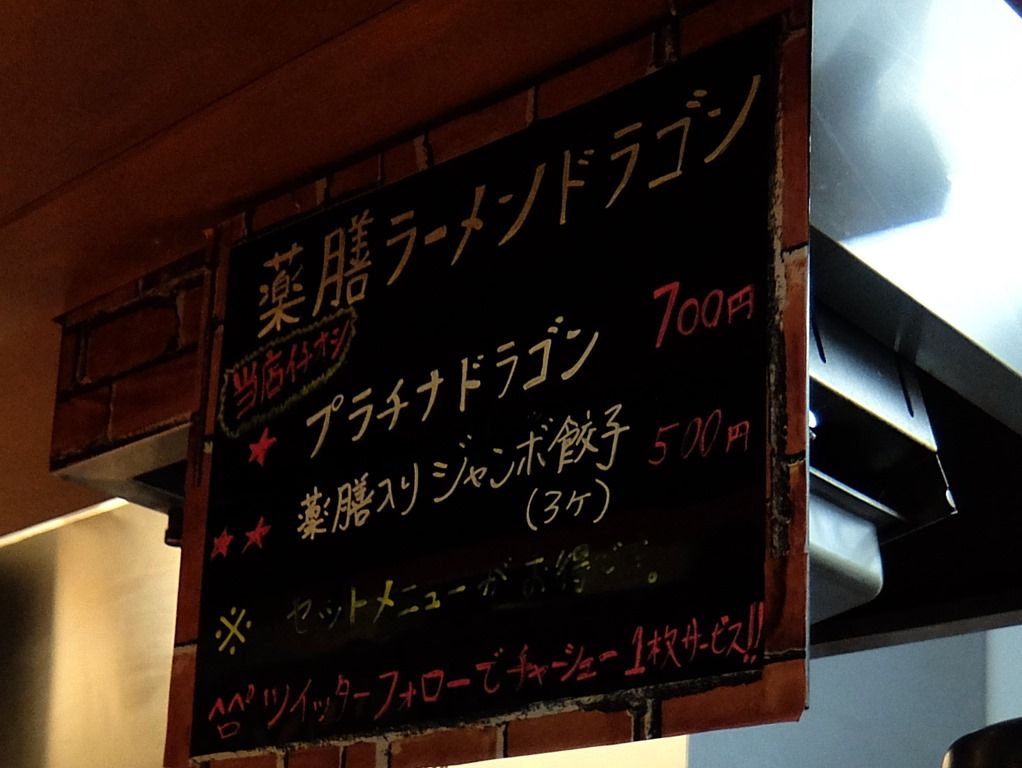 薬膳ラーメンドラゴン
当店イチオシ
★ プラチナドラゴン 700円
★★ 薬膳入りジャンボ餃子 500円
(3ケ)
※ セットメニューがお得です。
ツイッターフォローでチャーシュー1枚サービス!!